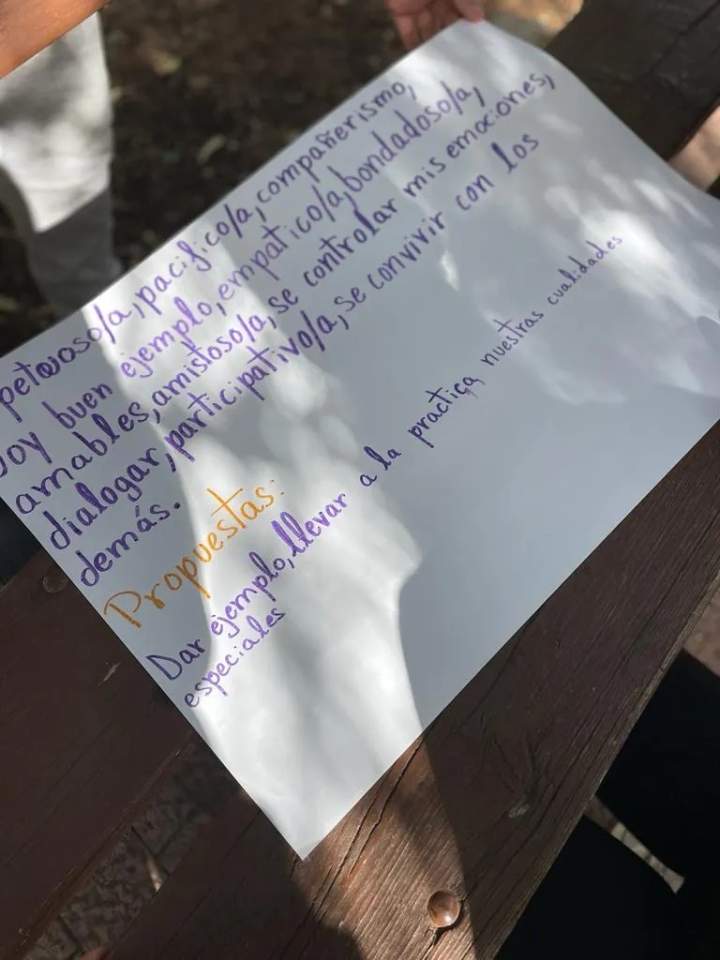 petuoso/a, pacifico/a, compañerismo,
soy buen ejemplo, empatico/a, bondadoso/a,
amables, amistoso/a, se controlar mis emociones,
dialogar, participativo/a, se convivir con los
demás.
Propuestas:
Dar ejemplo, llevar a la practica nuestras cualidades
especiales